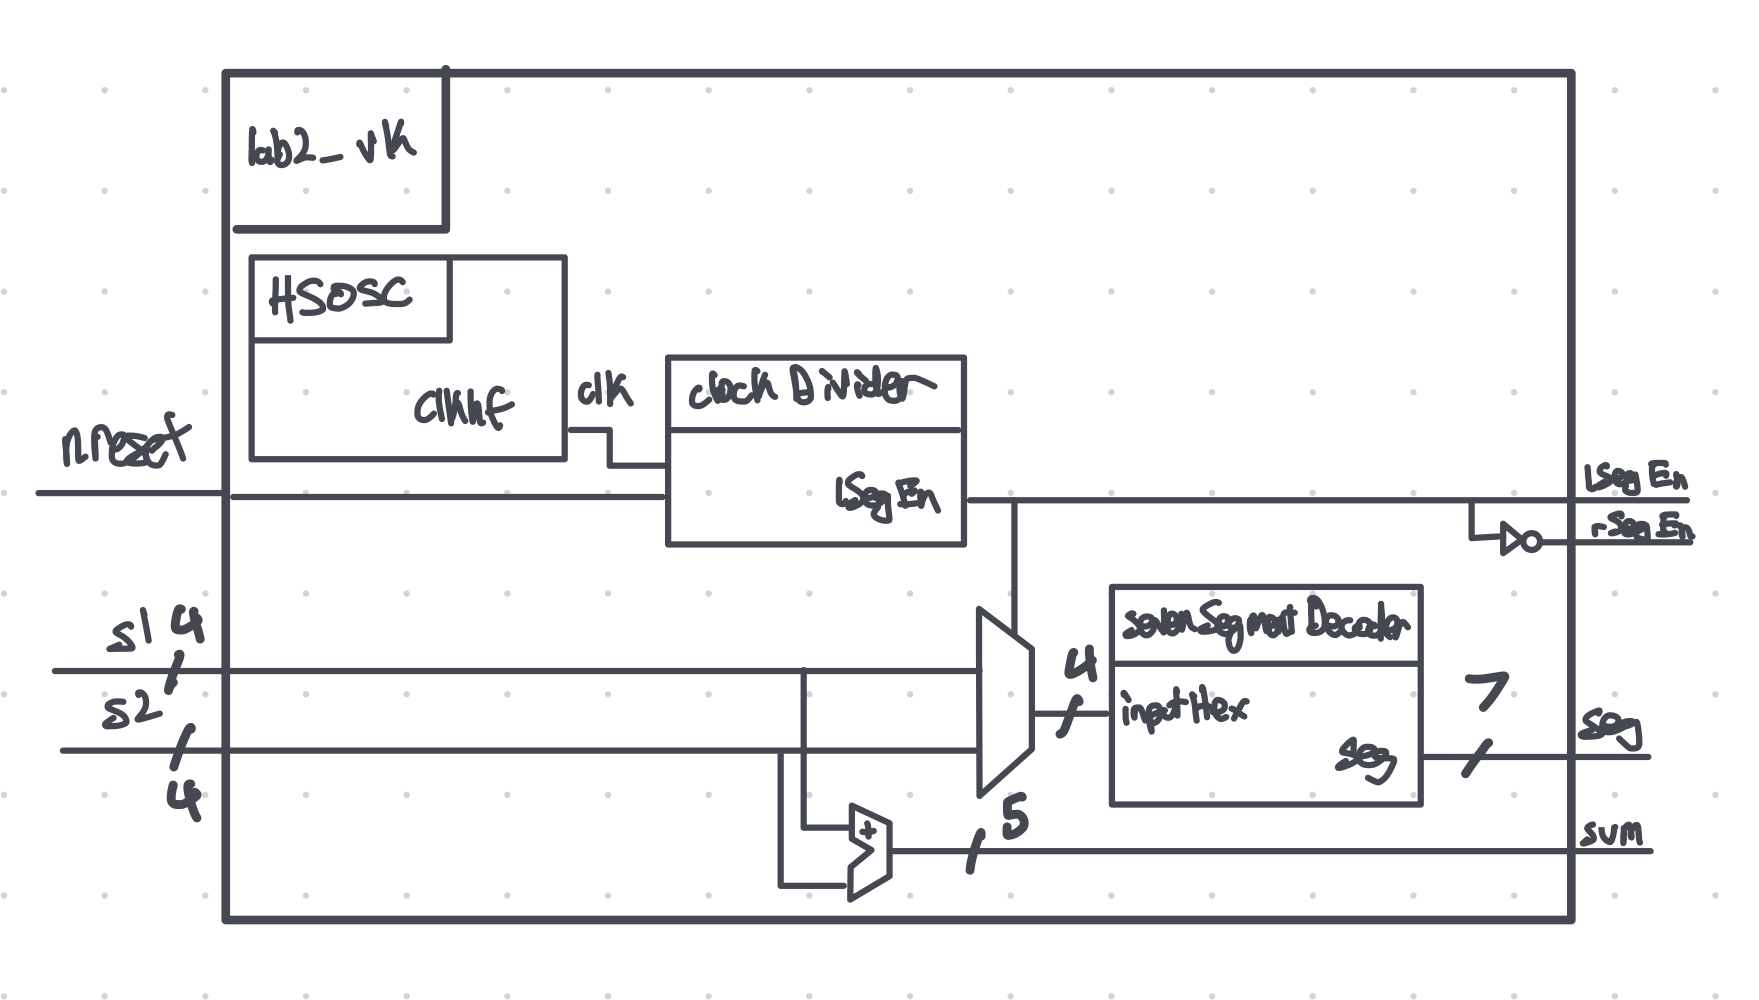 lab2_vk
HSOSC
clkhf
clk
clock Divider
lSegEn
nreset
lSegEn
rSegEn
s1 4
s2
4
sevenSegmentDecoder
inputHex
seg
4
7
seg
+
5
sum